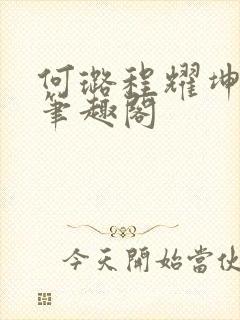 何璐程耀坤
筆趣閣
今天開始當伙